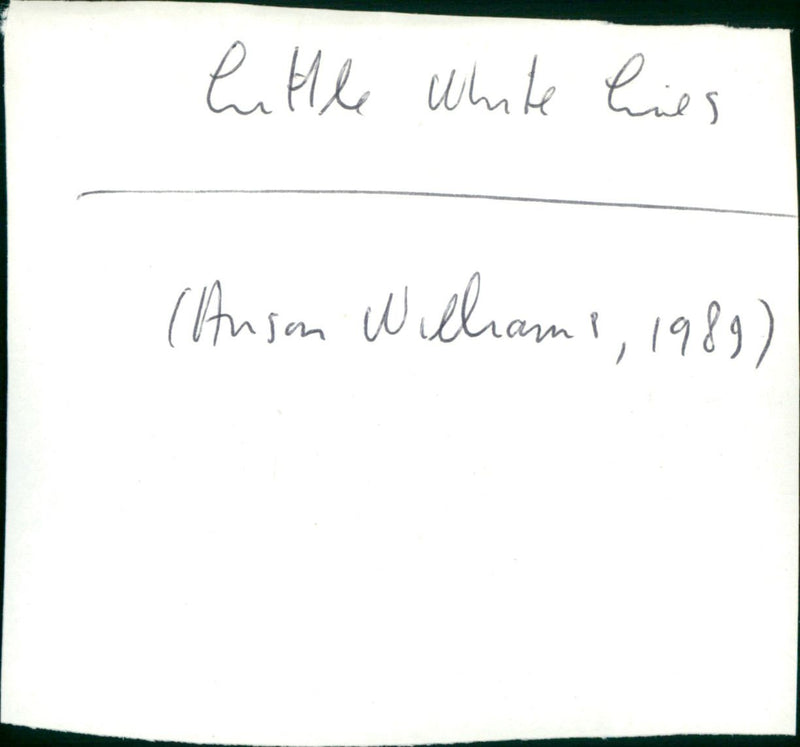 Little White Lies
(Anson Williams, 1989)